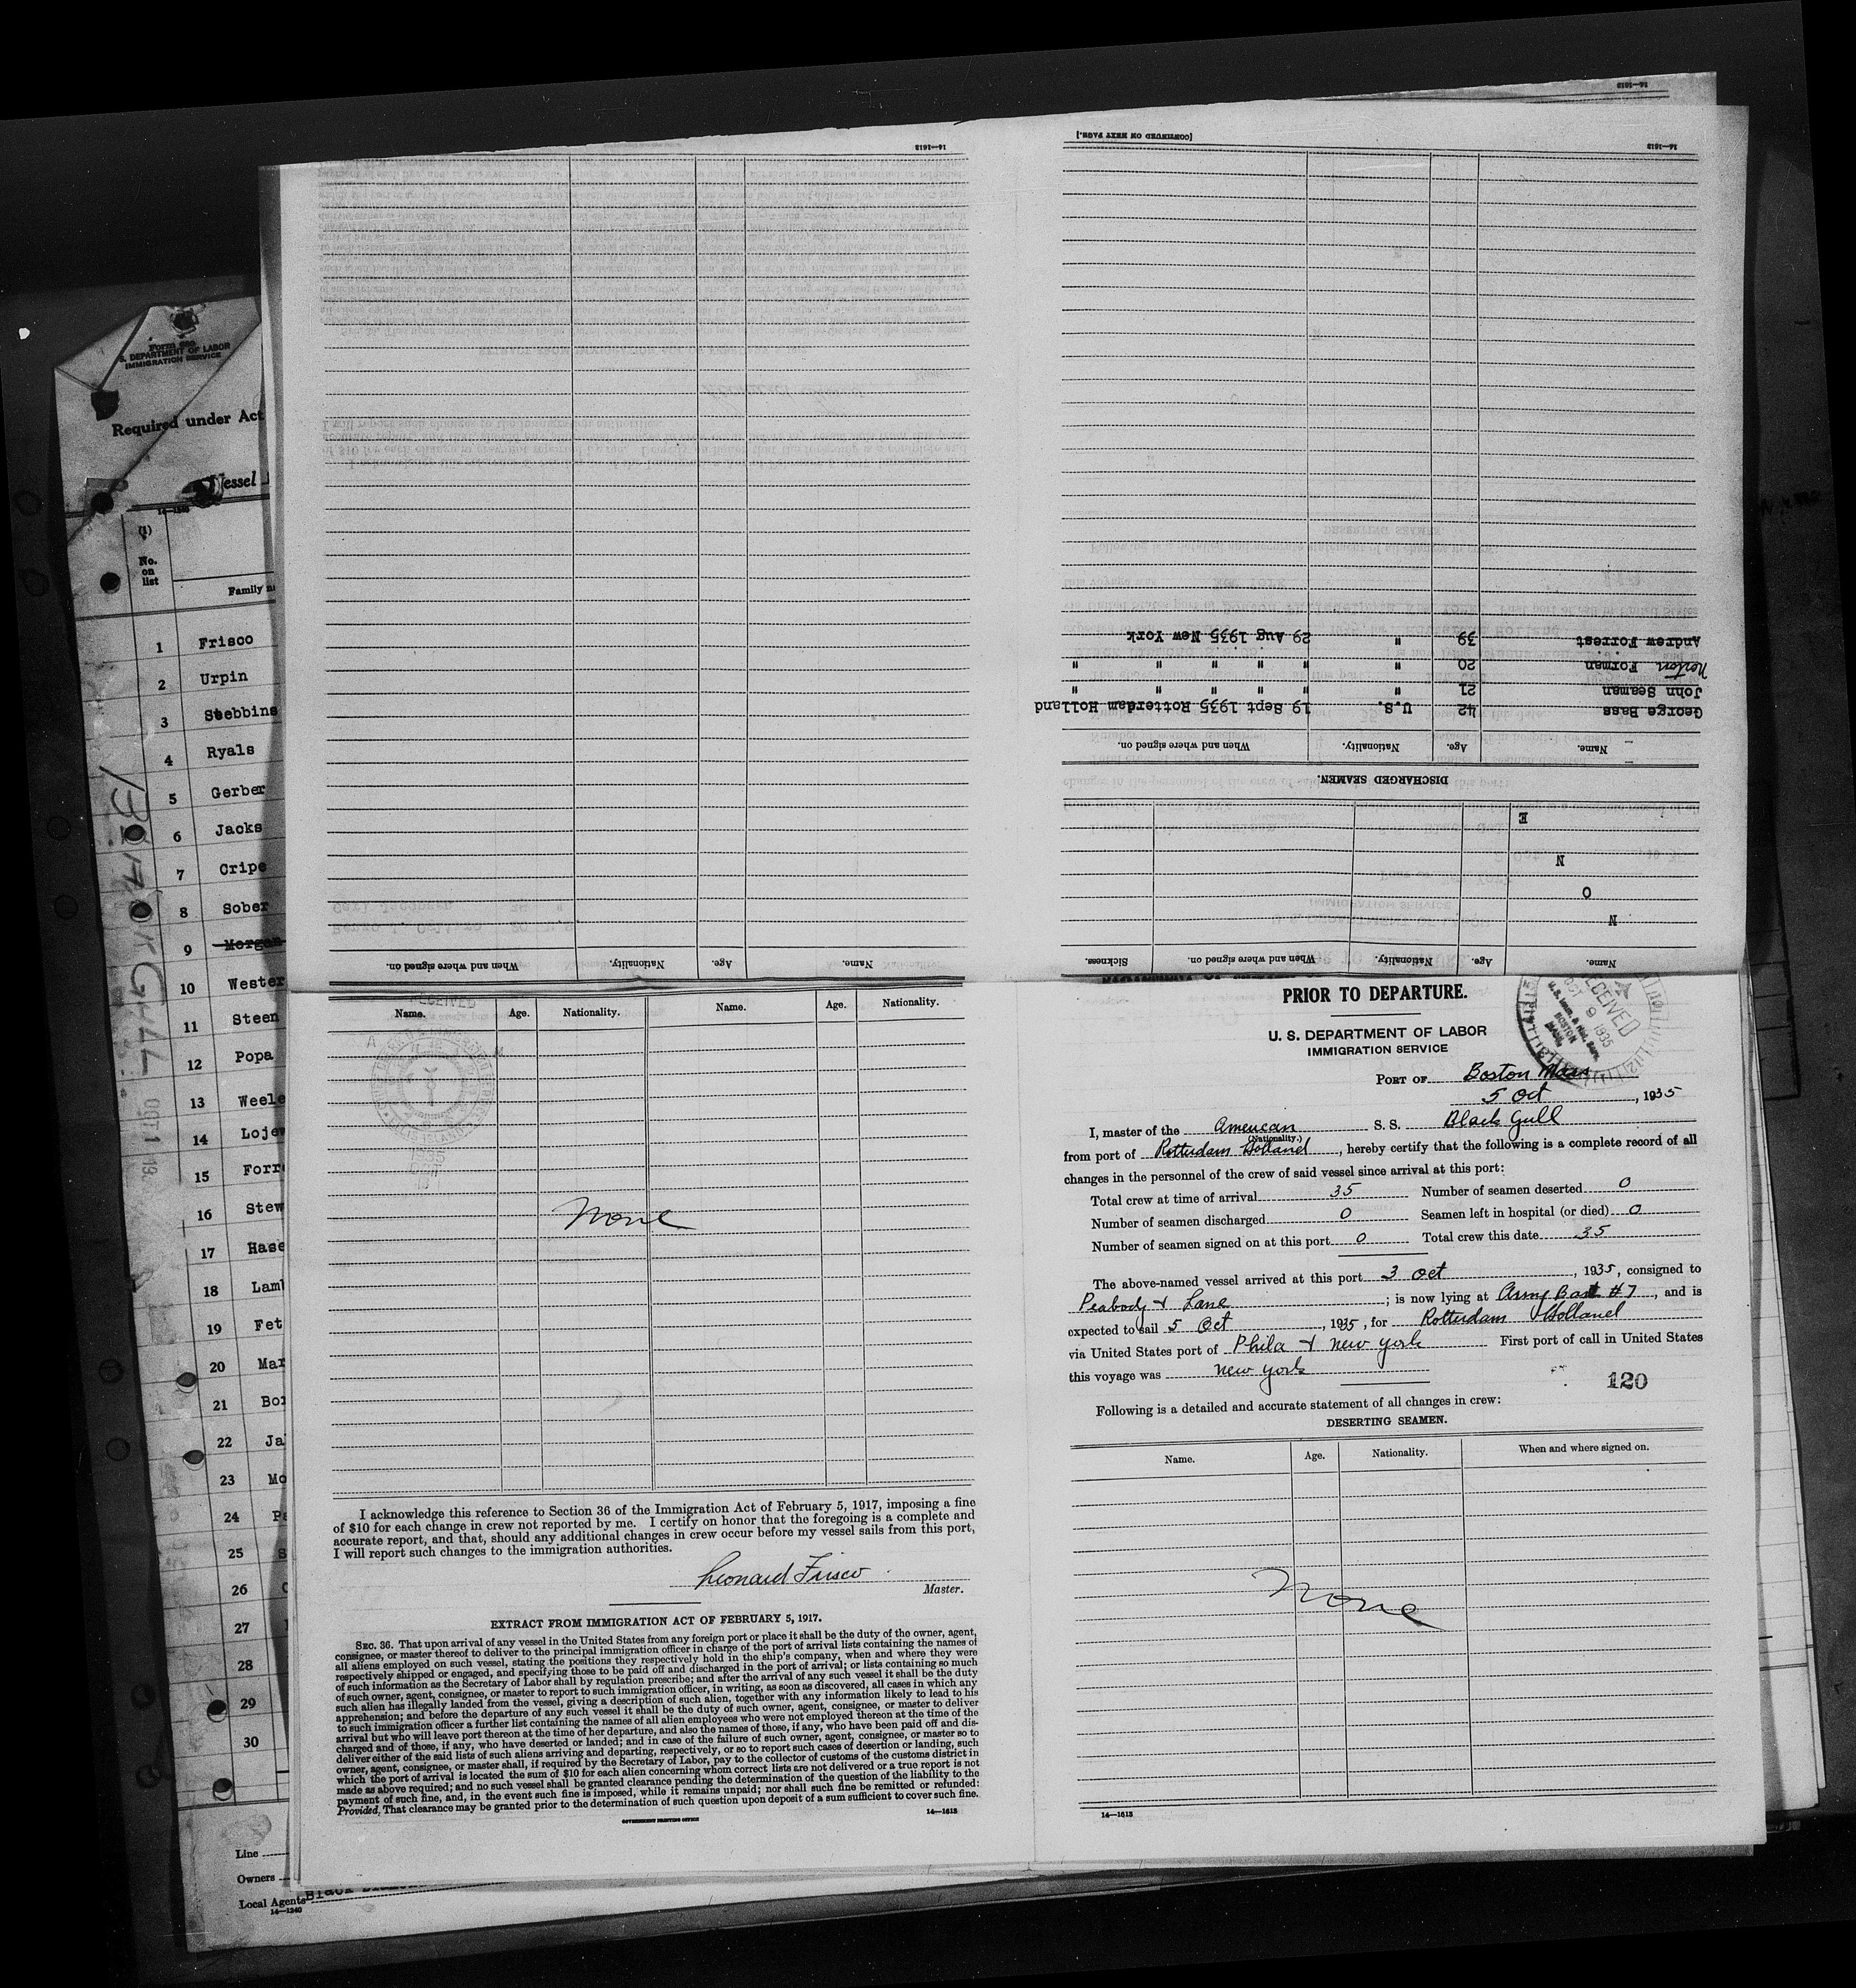 Form 689
S. DEPARTMENT OF LABOR
IMMIGRATION SERVICE
Required under Act
Vessel
(1)
No. on list
Family
1 Frisco
2 Urpin
3 Stebbins
4 Ryals
5 Gerber
6 Jacks
7 Cripe
8 Sober
9 Morgan
10 Wester
11 Steen
12 Popa
13 Weele
14 Lojew
15 Forr
16 Stew
17 Hase
18 Lamb
19 Fet
20 Mar
21 Bor
22 Ja
23 Mo
24 Pa
25 S
26
27
28
29
30
Line
Owners
Local Agents Black
14—1240
14—1613
Name. Age. Nationality. When and where signed on.
14—1613
[CONTINUED ON NEXT PAGE.]
14—1613
Name. Age. Nationality. When and where signed on. Sickness.
N
O
N
E
DISCHARGED SEAMEN.
Name. Age. Nationality. When and where signed on.
George Bass 42 U.S. 19 Sept 1935 Rotterdam Holland
John Seaman 21 " " " " " "
Merton Forman 20 " " " " " "
Andrew Forrest 39 " 29 Aug 1935 New York
Name. Age. Nationality. Name. Age. Nationality.
None
I acknowledge this reference to Section 36 of the Immigration Act of February 5, 1917, imposing a fine
of $10 for each change in crew not reported by me. I certify on honor that the foregoing is a complete and
accurate report, and that, should any additional changes in crew occur before my vessel sails from this port,
I will report such changes to the immigration authorities.
Leonard Frisco
Master.
EXTRACT FROM IMMIGRATION ACT OF FEBRUARY 5, 1917.
SEC. 36. That upon arrival of any vessel in the United States from any foreign port or place it shall be the duty of the owner, agent,
consignee, or master thereof to deliver to the principal immigration officer in charge of the port of arrival lists containing the names of
all aliens employed on such vessel, stating the positions they respectively hold in the ship's company, when and where they were
respectively shipped or engaged, and specifying those to be paid off and discharged in the port of arrival; or lists containing so much
of such information as the Secretary of Labor shall by regulation prescribe; and after the arrival of any such vessel it shall be the duty
of such owner, agent, consignee, or master to report to such immigration officer, in writing, as soon as discovered, all cases in which any
such alien has illegally landed from the vessel, giving a description of such alien, together with any information likely to lead to his
apprehension; and before the departure of any such vessel it shall be the duty of such owner, agent, consignee, or master to deliver
to such immigration officer a further list containing the names of all alien employees who were not employed thereon at the time of the
arrival but who will leave port thereon at the time of her departure, and also the names of those, if any, who have been paid off and dis-
charged and of those, if any, who have deserted or landed; and in case of the failure of such owner, agent, consignee, or master so to
deliver either of the said lists of such aliens arriving and departing, respectively, or so to report such cases of desertion or landing, such
owner, agent, consignee, or master shall, if required by the Secretary of Labor, pay to the collector of customs of the customs district in
which the port of arrival is located the sum of $10 for each alien concerning whom correct lists are not delivered or a true report is not
made as above required; and no such vessel shall be granted clearance pending the determination of the question of the liability to the
payment of such fine, and, in the event such fine is imposed, while it remains unpaid; nor shall such fine be remitted or refunded:
Provided, That clearance may be granted prior to the determination of such question upon deposit of a sum sufficient to cover such fine.
GOVERNMENT PRINTING OFFICE 14—1613
PRIOR TO DEPARTURE.
U. S. DEPARTMENT OF LABOR
IMMIGRATION SERVICE
RECEIVED
OCT 9 1935
BOSTON
MASS.
PORT OF Boston Mass
5 Oct, 1935
I, master of the American S. S. Black Gull
(Nationality.)
from port of Rotterdam Holland, hereby certify that the following is a complete record of all
changes in the personnel of the crew of said vessel since arrival at this port:
Total crew at time of arrival 35 Number of seamen deserted 0
Number of seamen discharged 0 Seamen left in hospital (or died) 0
Number of seamen signed on at this port 0 Total crew this date 35
The above-named vessel arrived at this port 3 Oct, 1935, consigned to
Peabody & Lane; is now lying at Army Base #7, and is
expected to sail 5 Oct, 1935, for Rotterdam Holland
via United States port of Phila & New York First port of call in United States
this voyage was New York
120
Following is a detailed and accurate statement of all changes in crew:
DESERTING SEAMEN.
Name. Age. Nationality. When and where signed on.
None
14—1613